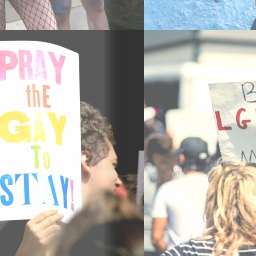 PRAY
thE
GAY
To
STAY!
B
LG